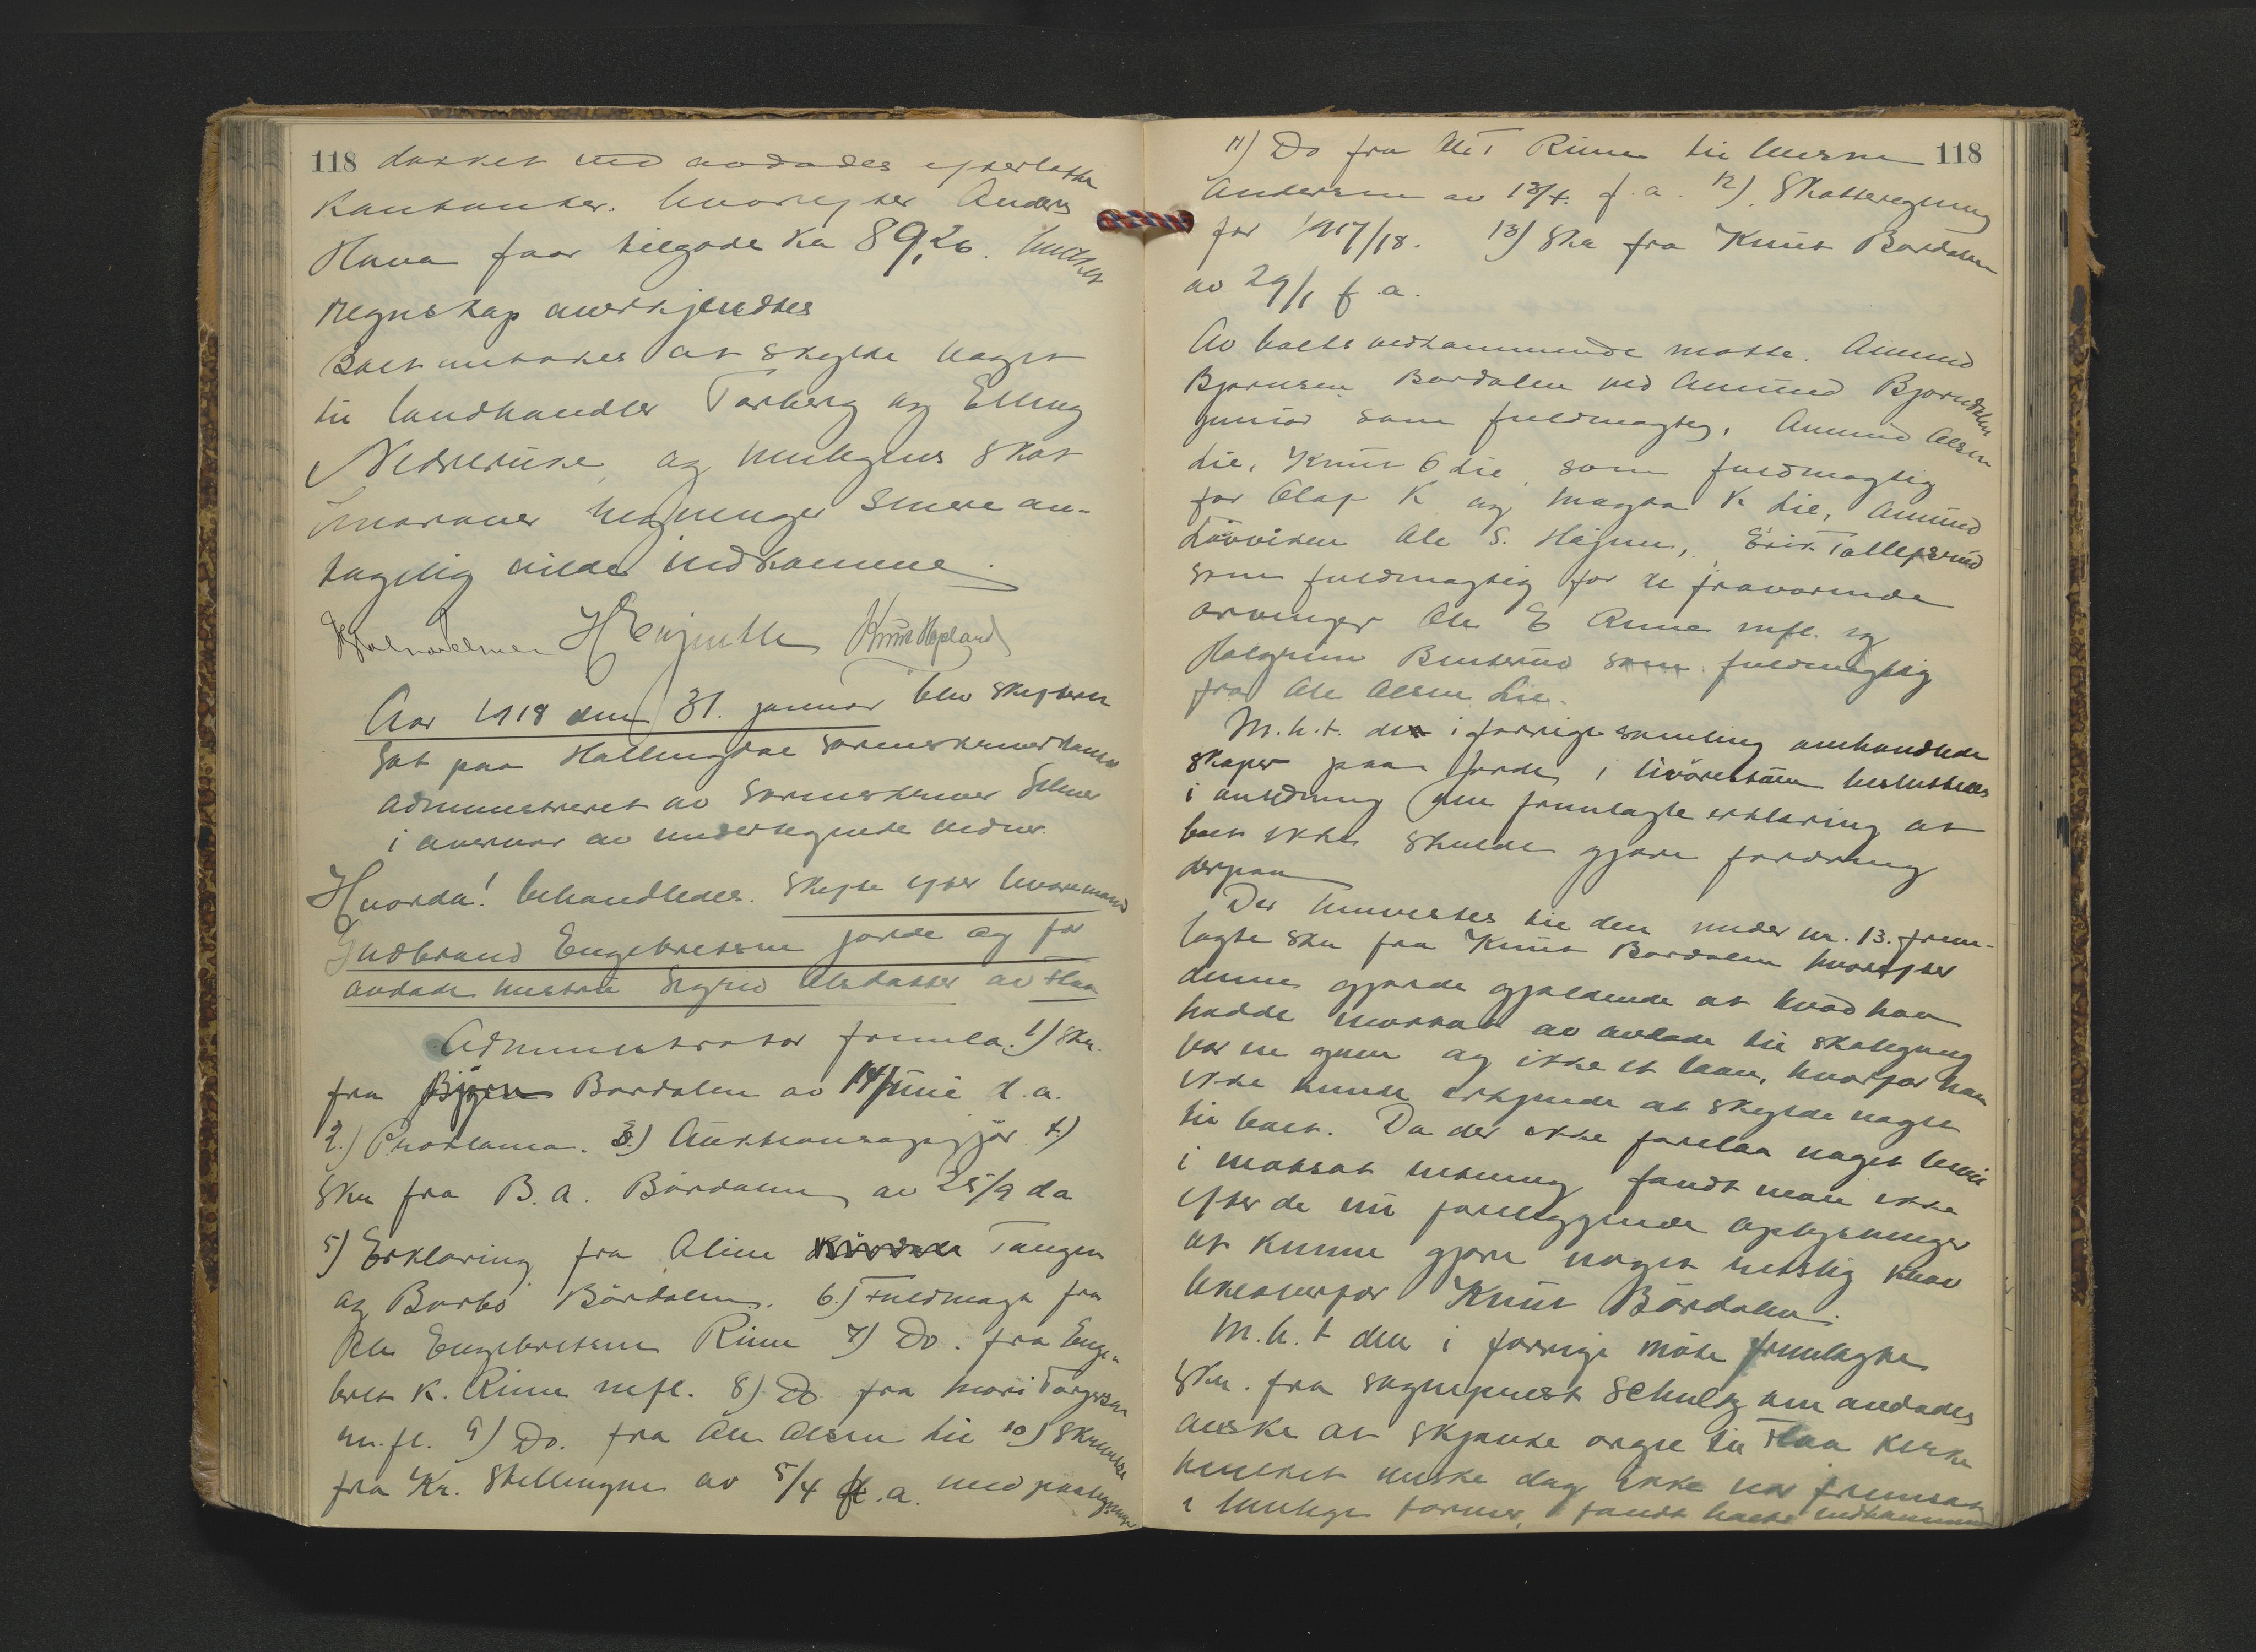 118 dækket ved avdødes efterlatte
Kontanter. hvorefter Anders
Hava faar tilgode Kr 89,26.
regnskap anerkjendtes
Boet antokes at skylde noget
til landhandler Torberg og Elling
Nedreruke og muligens skat
hvorover regninger senere an-
tagelig vilde indkomme.
Knut Hopland
Aar 1918 den 31. januar blev skifteret
sat paa Hallingdal sorenskriverkontor
administreret av sorenskriver
i overvær av undertegnede vidner.
Hvorda! behandledes. Skifte efter
Gudbrand Engebretsen Jorde og før
avdøde hustru Sigrid Olsdatter av Flaa
Administrator fremla. 1) Skr.
fra Björn Bordalen av 14/juni d.a.
2.) Proklama. 3) Auktionsopgjör 4)
Skr fra B.A. Bördalen av 25/9 da
5) Erklæring fra Aline Tangen
og Barbo Bördalen. 6.) Fuldmagt fra
Ole Engebretsen Rime 7) Do. fra Enge-
bret K. Rime mfl. 8) Do fra Mari Torgersen
m.fl. 9) Do. fra Ole Olsen Lie 10) Skrivelse
fra Kr. Skellingne av 5/4 f.a. med paategninger
118
11) Do fra Ole T Rime til
Andersen av 13/4. f.a. 12). Skatteregning
for 1917/18. 13) Skr fra Knut Bordalen
av 29/1 f.a.
Av boets vedkommende møtte. Amund
Bjørnsen Bordalen ved Amund Bjorndalen
junior som fuldmægtig, Amund Olsen
Lie, Knut O Lie som fuldmægtig
for Olaf K og Magda K Lie, Amund
Lövviken Ole S. Högne, Erik Tollefsrud
som fuldmægtig for de fraværende
arvinger Ole E Rime mfl. og
Halgrim Bruterud som fuldmægtig
fra Ole Olsen Lie.
M.h.t. det i forrige samling omhandlede
skaper paa Jorde, i livörestuen besluttedes
i anledning den fremlagte erklæring at
boet ikke skulde gjøre fordring
derpaa
Der henvistes til den under nr. 13. frem-
lagte skr fra Knut Bordalen hvorefter
denne gjorde gjældende at hvad han
hadde mottat av avdøde til skolegang
var en gave og ikke et laan, hvorfor han
ikke kunde erkjende at skylde noget
til boet. Da der ikke forelaa noget bevis
i motsat retning fandt man ikke
efter de nu foreliggende oplysninger
at kunne gjøre noget retslig krav
likeoverfor Knut Bördalen.
M.h.t den i forrige møte fremlagte
Skr. fra sogneprest Schultz om avdødes
ønske at skjænke orgel til Flaa Kirke
hvilket ønske dog ikke var fremsat
i lovlige former, fandt boets vedkommende